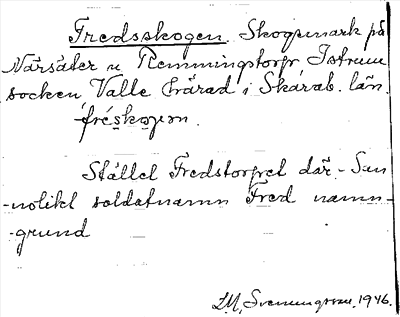 Fredsskogen Skogsmark på
Närsäter u Remmingstorp Istrum
socken Valle härad i Skarab. län
fréskojen.
Stället Fredstorpet där. San-
-nolikt soldatnamn Fred namn-
-grund
1946.